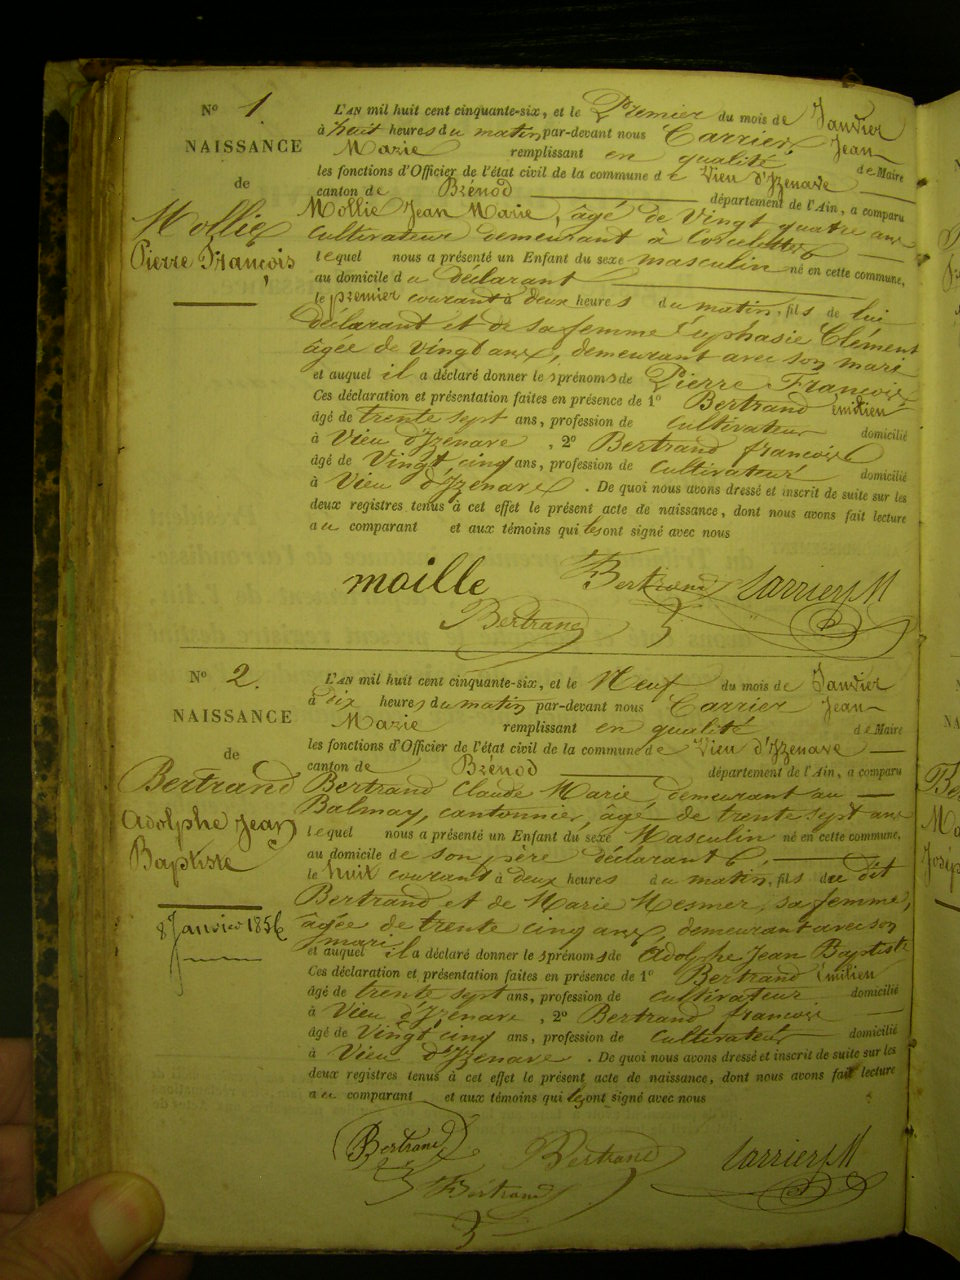 N° 1.
NAISSANCE
de
Mollie
Pierre François
L'AN mil huit cent cinquante-six, et le Premier du mois de Janvier
à huit heures du matin, par-devant nous Carrier Jean
Marie remplissant en qualité de Maire
les fonctions d'Officier de l'état civil de la commune de Vieu d'Izenave
canton de Brénod département de l'Ain, a comparu
Mollie Jean Marie, âgé de Vingt quatre ans
cultivateur demeurant à
lequel nous a présenté un Enfant du sexe masculin né en cette commune,
au domicile du déclarant
le premier courant à deux heures du matin, fils de lui
déclarant et de sa femme Euphasie Clément
âgée de vingt ans, demeurant avec son mari
et auquel il a déclaré donner les prénoms de Pierre François
Ces déclaration et présentation faites en présence de 1° Bertrand émilien
âgé de trente sept ans, profession de cultivateur domicilié
à Vieu d'Izenave, 2° Bertrand françois
âgé de Vingt cinq ans, profession de cultivateur domicilié
à Vieu d'Izenave. De quoi nous avons dressé et inscrit de suite sur les
deux registres tenus à cet effet le présent acte de naissance, dont nous avons fait lecture
au comparant et aux témoins qui les ont signé avec nous
moille Bertrand Carrier JM
Bertrand
N° 2.
NAISSANCE
de
Bertrand
Adolphe Jean
Baptiste
8 Janvier 1856
L'AN mil huit cent cinquante-six, et le Neuf du mois de Janvier
à dix heures du matin par-devant nous Carrier Jean
Marie remplissant en qualité de Maire
les fonctions d'Officier de l'état civil de la commune de Vieu d'Izenave
canton de Brénod département de l'Ain, a comparu
Bertrand Claude Marie demeurant au
Balmay, cantonnier, âgé de trente sept ans
lequel nous a présenté un Enfant du sexe Masculin né en cette commune,
au domicile de son père déclarant,
le huit courant à deux heures du matin, fils du dit
Bertrand et de Marie Mesmer, sa femme,
âgée de trente cinq ans, demeurant avec son
mari
et auquel il a déclaré donner les prénoms de Adolphe Jean Baptiste
Ces déclaration et présentation faites en présence de 1° Bertrand émilien
âgé de trente sept ans, profession de cultivateur domicilié
à Vieu d'Izenave, 2° Bertrand françois
âgé de Vingt cinq ans, profession de Cultivateur domicilié
à Vieu d'Izenave. De quoi nous avons dressé et inscrit de suite sur les
deux registres tenus à cet effet le présent acte de naissance, dont nous avons fait lecture
au comparant et aux témoins qui les ont signé avec nous
Bertrand Bertrand Carrier JM
Bertrand